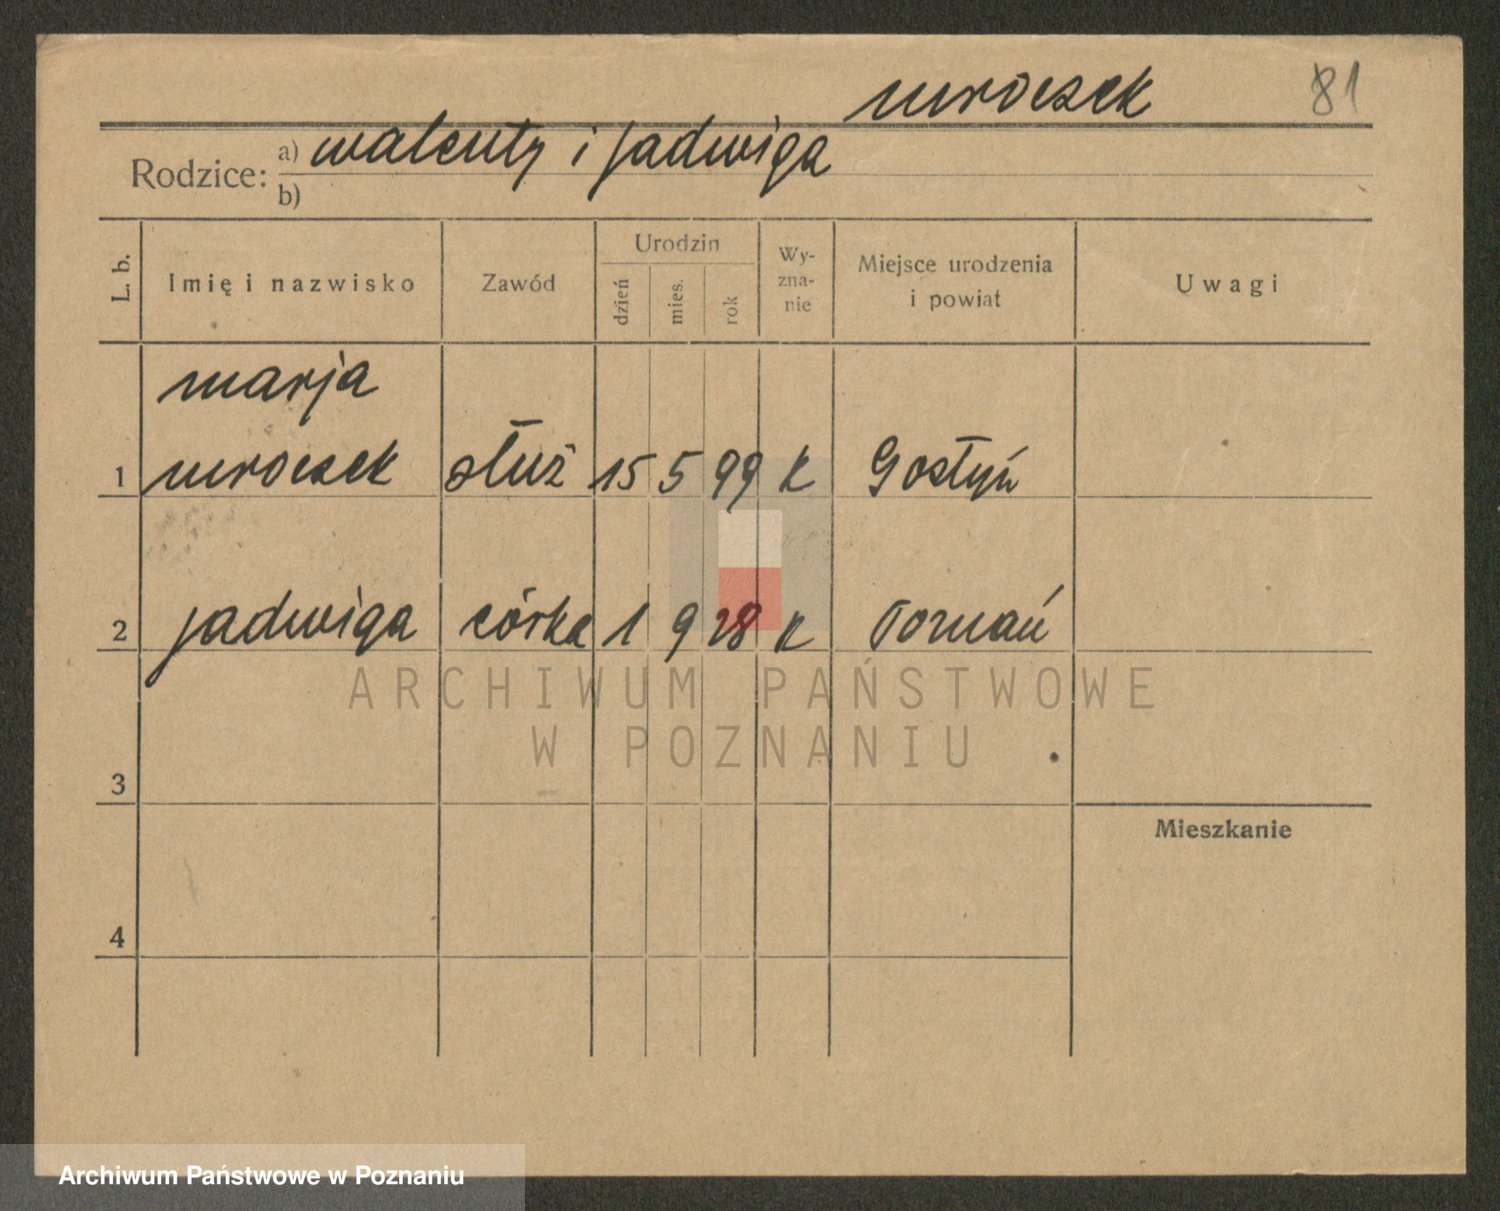 mroczek
81
Rodzice: a) walenty i jadwiga
b)
L. b.
Imię i nazwisko
Zawód
Urodzin
dzień
mies.
rok
Wy-
zna-
nie
Miejsce urodzenia
i powiat
Uwagi
marja
1 mroczek służ 15 5 99 K Gostyń
2 jadwiga córka 1 9 28 K Poznań
ARCHIWUM PAŃSTWOWE
W POZNANIU
3
Mieszkanie
4
Archiwum Państwowe w Poznaniu